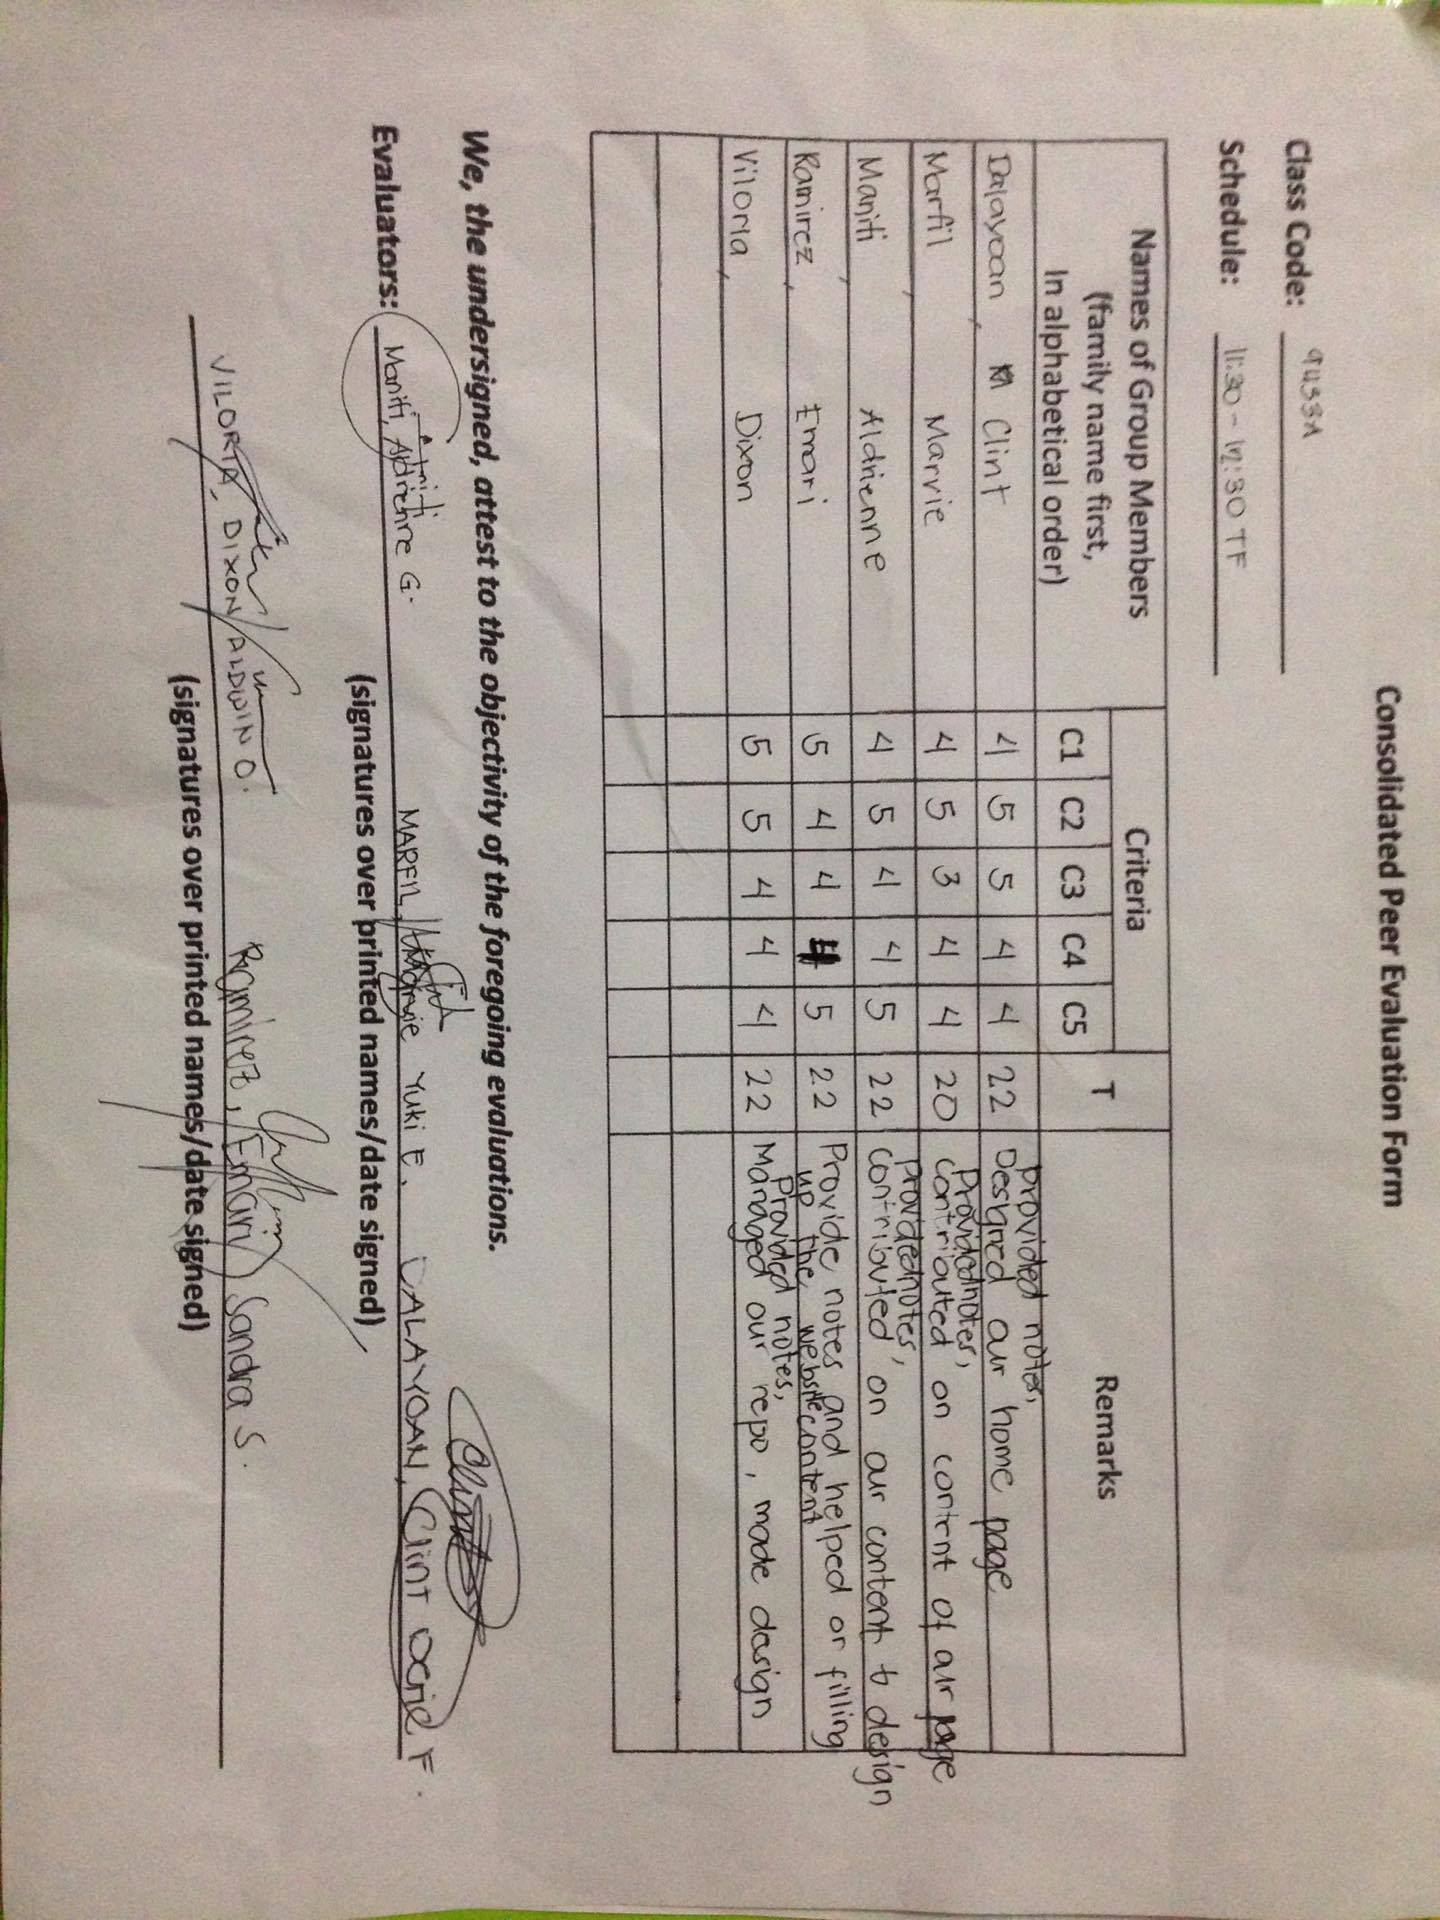 Consolidated Peer Evaluation Form
Class Code: 9455A
Schedule: 11:30 - 12:30 TF
Names of Group Members (family name first, In alphabetical order) Criteria T Remarks
C1 C2 C3 C4 C5
Dalayoan, Clint 4 5 5 4 4 22 Provided notes, Designed our home page
Marfil, Marvie 4 5 3 4 4 20 Provided notes, contributed on content of our page
Maniti, Aldrienne 4 5 4 4 5 22 Provided notes, contributed on our content & design
Ramirez, Emari 5 4 4 4 5 22 Provide notes and helped or filling up the website content
Viloria, Dixon 5 5 4 4 4 22 Provided notes, Managed our repo, made design
We, the undersigned, attest to the objectivity of the foregoing evaluations.
Evaluators: Maniti, Aldrienne G. MARFIL, Marvie Yuki E. DALAYOAN, Clint F.
(signatures over printed names/date signed)
VILORIA, DIXON ALDWIN O. Ramirez, Emari Sandra S.
(signatures over printed names/date signed)